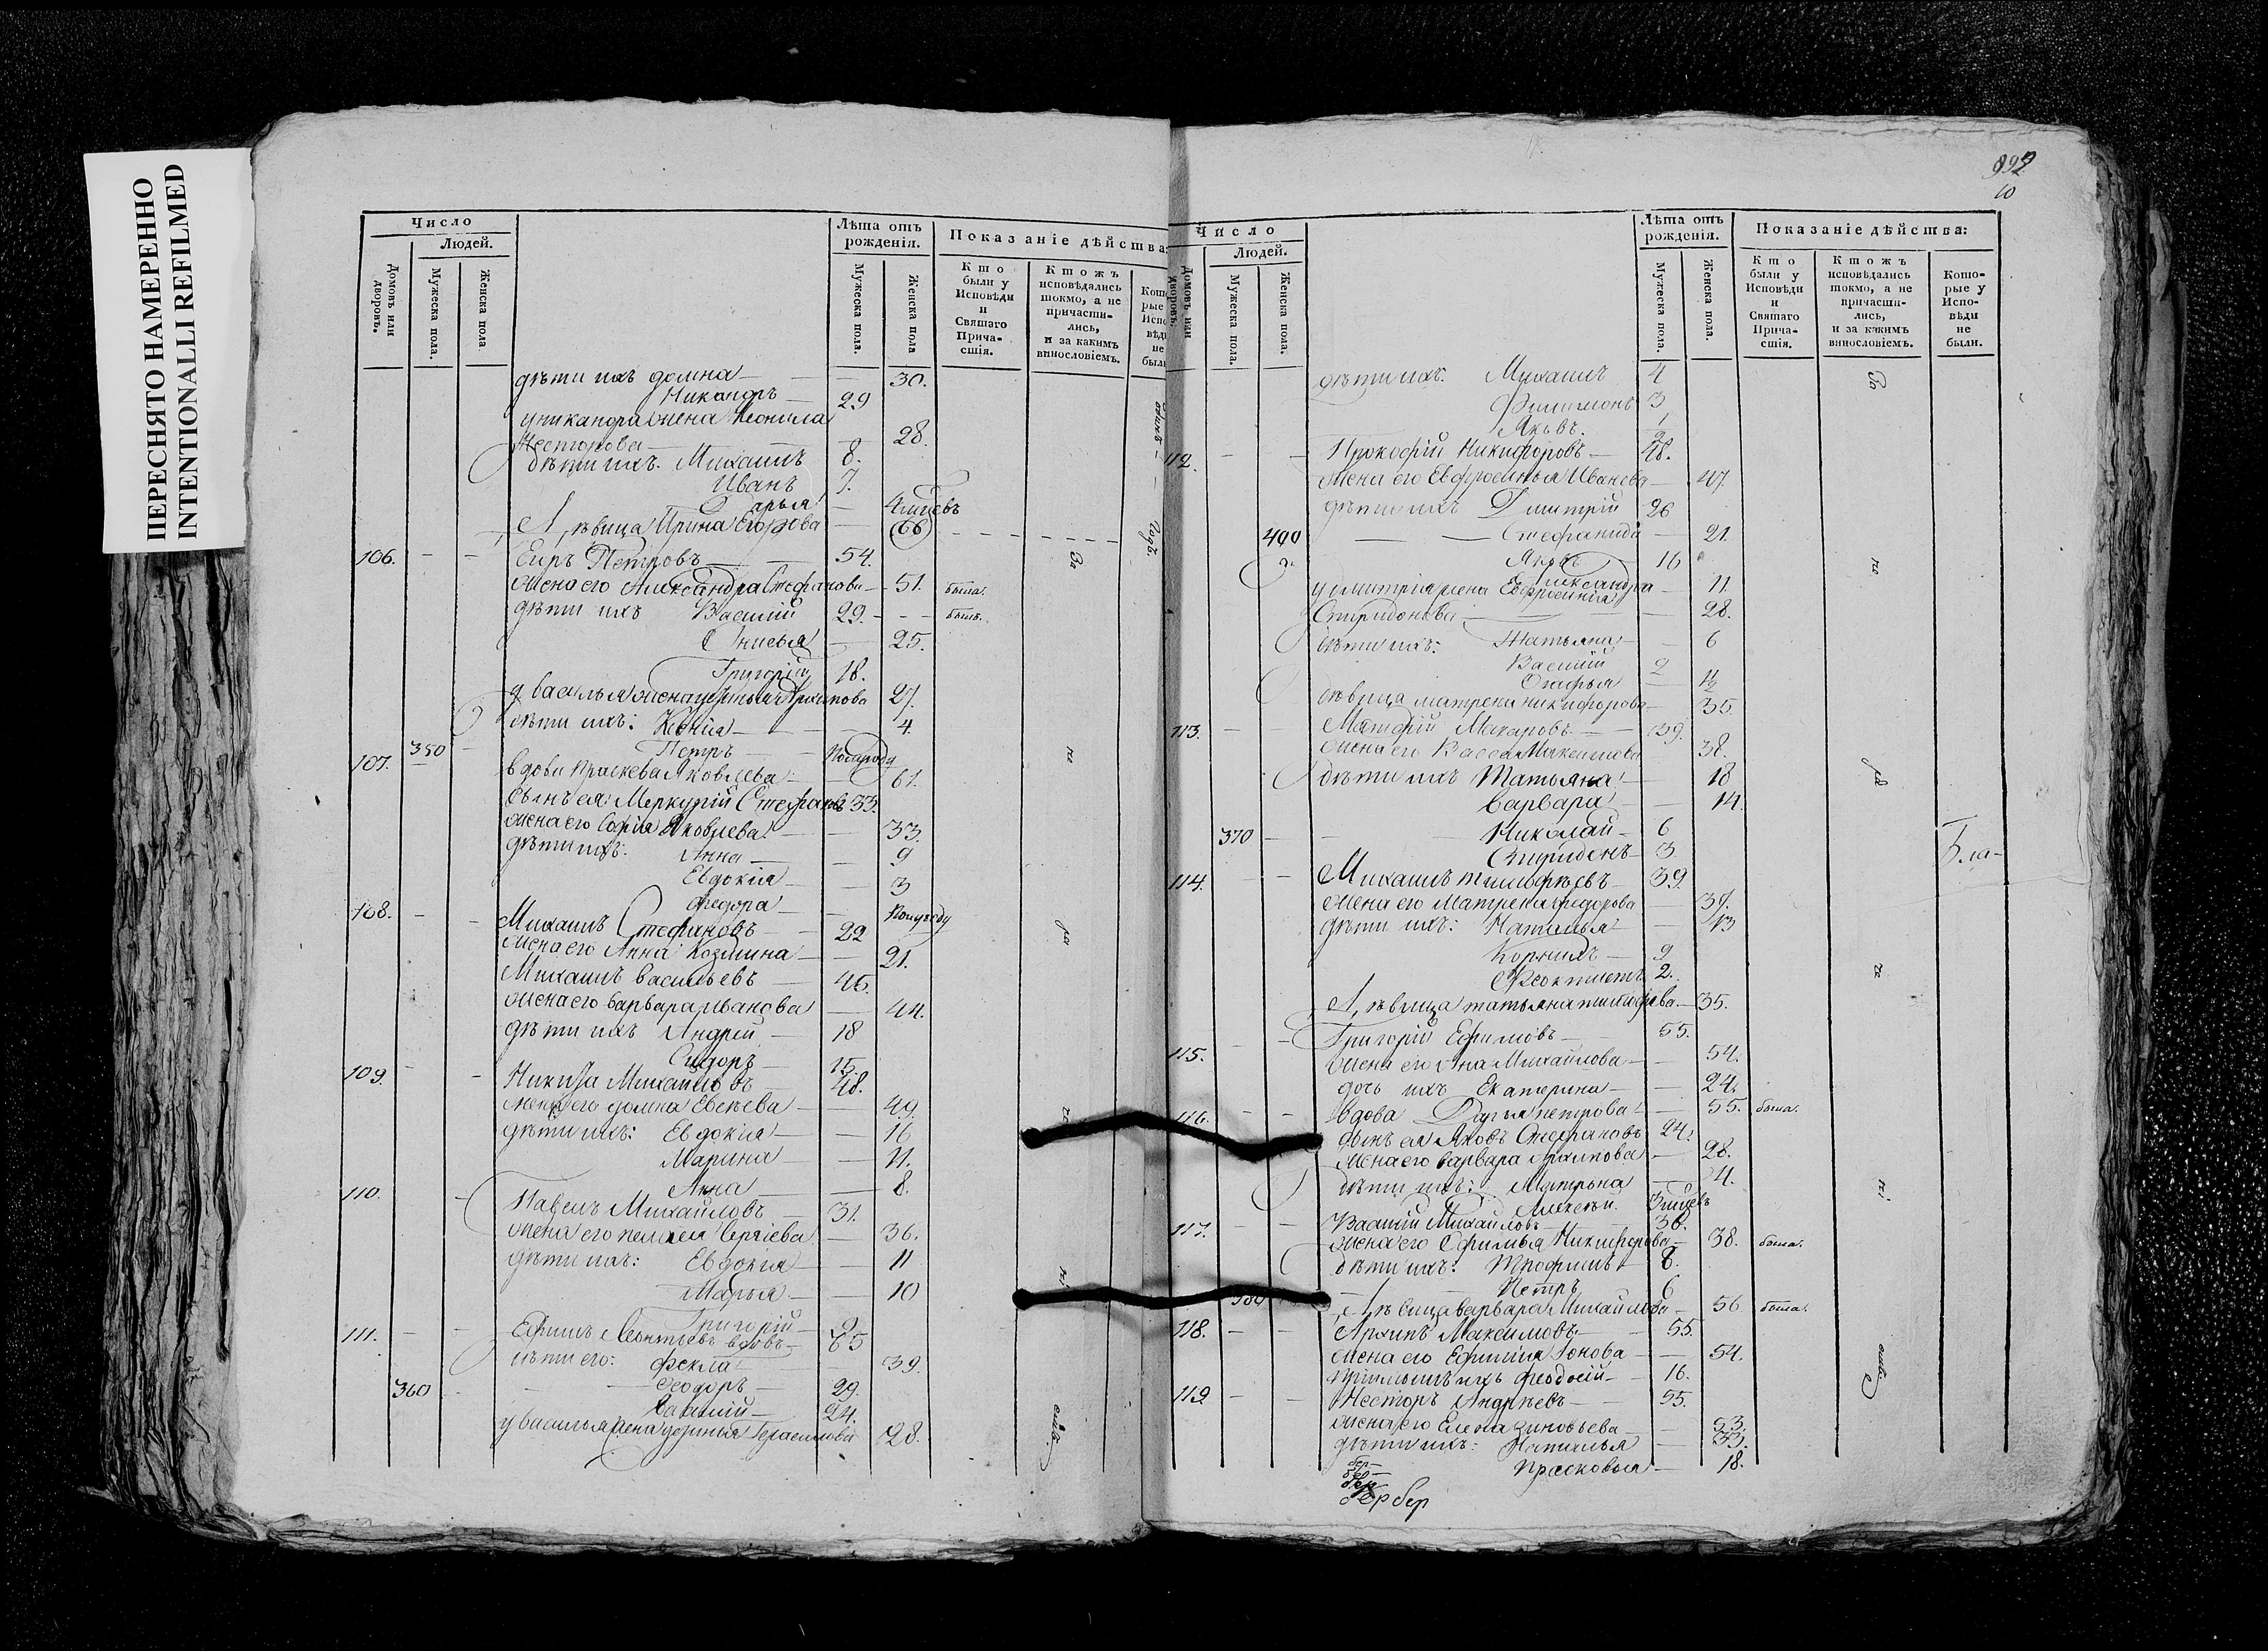 ПЕРЕСНЯТО НАМЕРЕННО
INTENTIONALLI REFILMED
Число
Людей.
Домовъ или дворовъ.
Мужеска пола.
Женска пола
Лѣта отъ рожденія.
Мужеска пола.
Женска пола
Показаніе дѣйства:
Кто были у Исповѣди и Святаго Причастія.
Ктожъ исповѣдались токмо, а не причастились, и за какимъ винословіемъ.
дѣти ихъ домна 30.
Никаноръ 29
у никанора жена Неонила
Несторова 28.
дѣти ихъ. Михаилъ 8.
Иванъ 7.
Дарья 4 мцевъ
Дѣвица Ирина Егорова 66
106. Киръ Петровъ 54.
жена его Александра Стефанова 51. была.
дѣти ихъ Василій 29. былъ.
Анисья 25.
Григорій 18.
у василья жена Архипова 27.
дѣти ихъ: Ксенія 4.
350 Петръ полугоду
107. вдова праскева Яковлева 61.
Сынъ ея Меркурій Стефановъ 33.
жена его Софія Яковлева 33.
дѣти ихъ: Анна 9
Евдокія 3
Федора полугоду
108. Михаилъ Стефановъ 22
жена его Анна Козмина 21.
Михаилъ васильевъ 45.
жена его варвара иванова 44.
дѣти ихъ Андрей 18
Сидоръ 15.
109. Никита Михаиловъ 48.
жена его домна Евсѣева 49.
дѣти ихъ: Евдокія 16
Марина 11.
Анна 8.
110. Павелъ Михайловъ 31.
жена его пелагея Сергіева 36.
дѣти ихъ: Евдокія 11
Марья 10
Григорій 2
111. Ефимъ Леонтіевъ вдовъ 75
дѣти его: Фекла 39.
360 Феодоръ 29.
василій 24.
у василья жена Герасимова 28.
992
10
Число
Людей.
Домовъ или дворовъ.
Мужеска пола.
Женска пола.
Лѣта отъ рожденія.
Мужеска пола.
Женска пола.
Показаніе дѣйства:
Кто были у Исповѣди и Святаго Причастія.
Ктожъ исповѣдались токмо, а не причастились, и за какимъ винословіемъ.
Которые у Исповѣди не были.
дѣти ихъ. Михаилъ 4
Филимонъ 3
Яковъ. 1/2
112. Прокофій Никифоровъ 48.
жена его Евфросинья Иванова 47.
дѣти ихъ Дмитрій 26
400 Стефанида 21.
Яковъ 16
Александра 11.
у димитрія жена Евфросинія
Спиридонова 28.
дѣти ихъ: Татьяна 6
Василій 2
Агафья 1/2
дѣвица матрена никифорова 35.
113. Матфій Макаровъ 39.
жена его Васса Максимова 38.
дѣти ихъ Татьяна 18
варвара 14.
370 Николай 6
Спиридонъ 3
Бла-
114. Михаилъ тимофѣевъ 39.
жена его Матрена федорова 39.
дѣти ихъ: Наталья 13
Корнилъ 9
Феоктистъ 2.
Дѣвица татьяна 35.
115. Григорій Ефимовъ 55.
жена его Анна Михайлова 54.
дочь ихъ Екатерина 24.
116. вдова Дарья петрова 55. была.
сынъ ея Яковъ Стефановъ 24.
жена его варвара Архипова 28.
дѣти ихъ: Матрона 4.
Алексѣй. 3 мцевъ
117. Василій Михайловъ 36.
жена его Ефимья Никифорова 38. была.
дѣти ихъ: Трофимъ 8.
Петръ 6
Дѣвица варвара Михайлова 56 была.
118. Архипъ Максимовъ 55.
жена его Ефимія Іонова 54.
пріимышъ ихъ Феодосій 16.
119 Несторъ Андрѣевъ 55.
жена его Елена зиновьева 53.
дѣти ихъ: Наталья 33.
Прасковья 18.
бер
бер
бер
бер бер